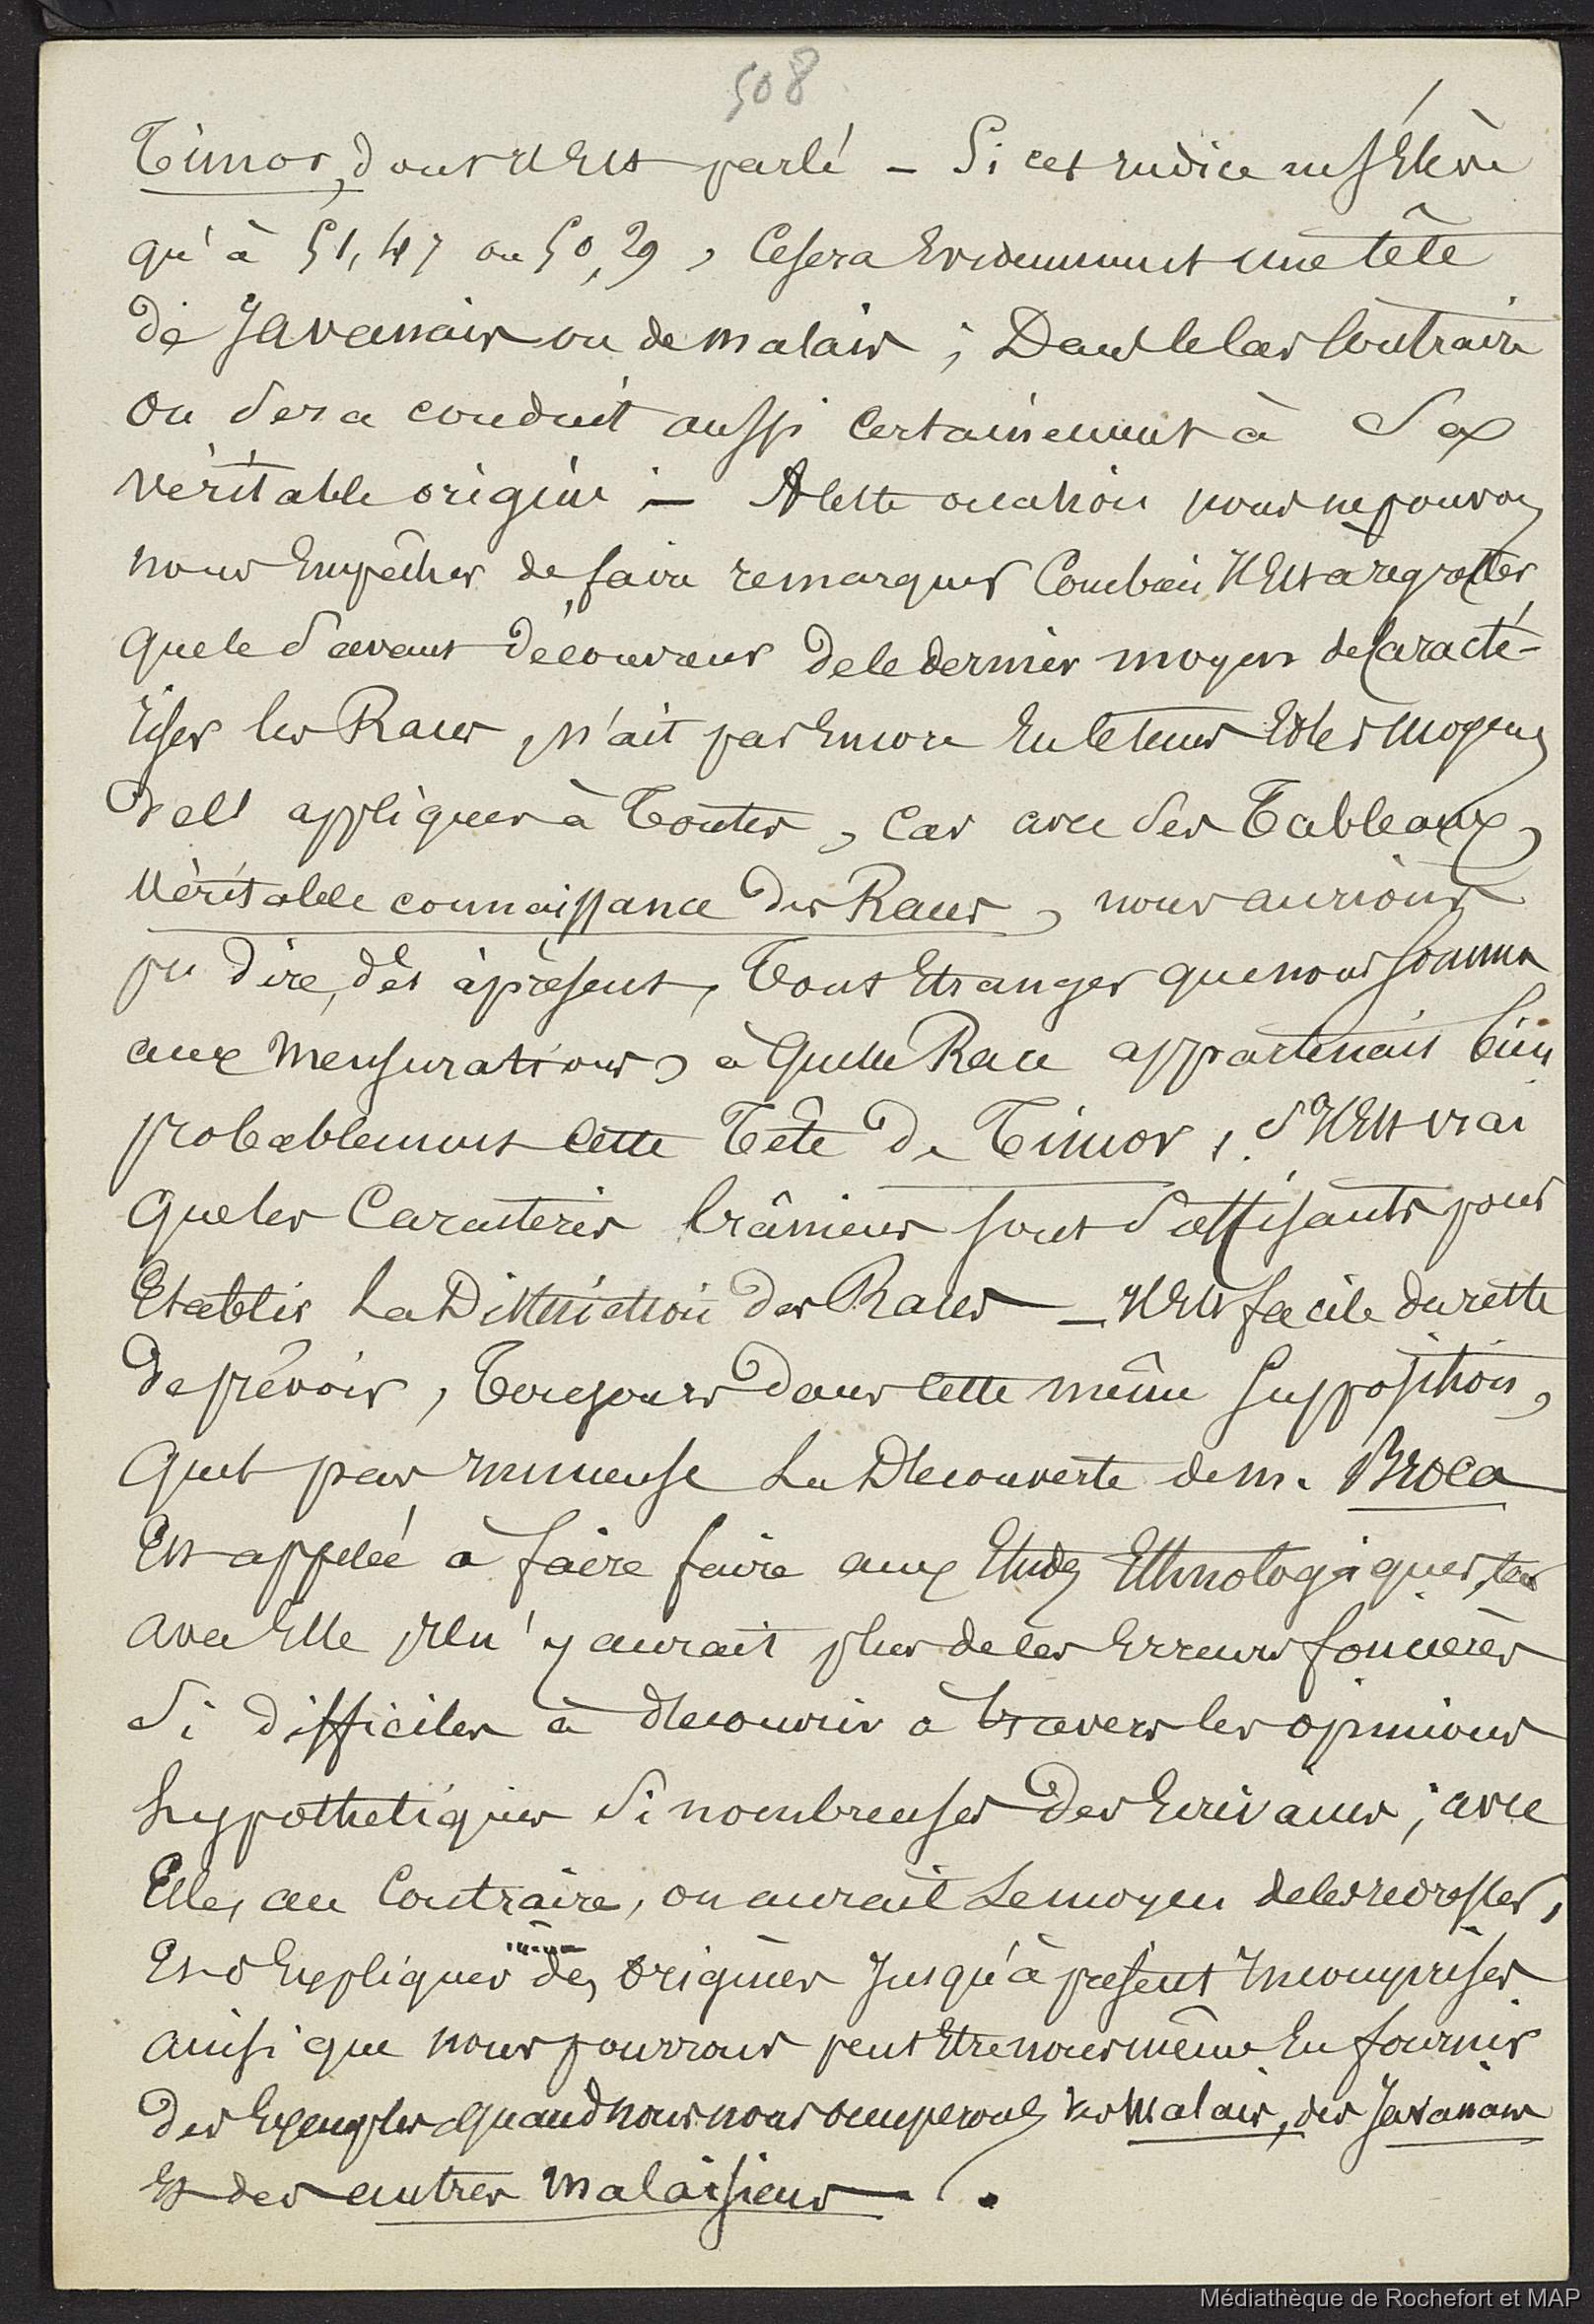 508
Timor, dont il est parlé – Si cet indice ne s'élève
qu'à 51,47 ou 50,29, ce sera evidemment une tête
de Javanais ou de malais ; Dans le cas contraire
on sera conduit aussi certainement à sa
véritable origine ; – A cette occasion nous ne pouvons
nous empêcher de faire remarquer Combien il est à regretter
que le savant découvreur de ce dernier moyen de caracté-
riser les Races, n'ait pas encore eu le temps et les moyens
de l'appliquer à Toutes, car avec ses Tableaux,
véritable connaissance des Races, nous aurions
pu dire, dès àprésent, Tout Etranger que nous sommes
aux mensurations, à quelle Race appartenait bien
probablement cette Tête de Timor, s'il est vrai
que les Caractères crâniens sont suffisants pour
Etablir La Distinction des Races – Il est facile du reste
de prévoir, Toujours dans cette même supposition,
quel pas immense La Découverte de m. Broca
Est appelée à faire faire aux Etudes Ethnologiques, car
avec Elle il n'y aurait plus de ces Erreurs foncières
si difficiles à découvrir à travers les opinions
hypothetiques si nombreuses des Ecrivains ; avec
Elle, au Contraire, on aurait Le moyen de les redresser,
Et d'Expliquer même des origines Jusqu'à présent Incomprises
ainsi que nous pourrons peut Etre nous même En fournir
des Exemples quand nous nous occuperons des Malais, des Javanais
Et des autres Malaisiens – .
Médiathèque de Rochefort et MAP